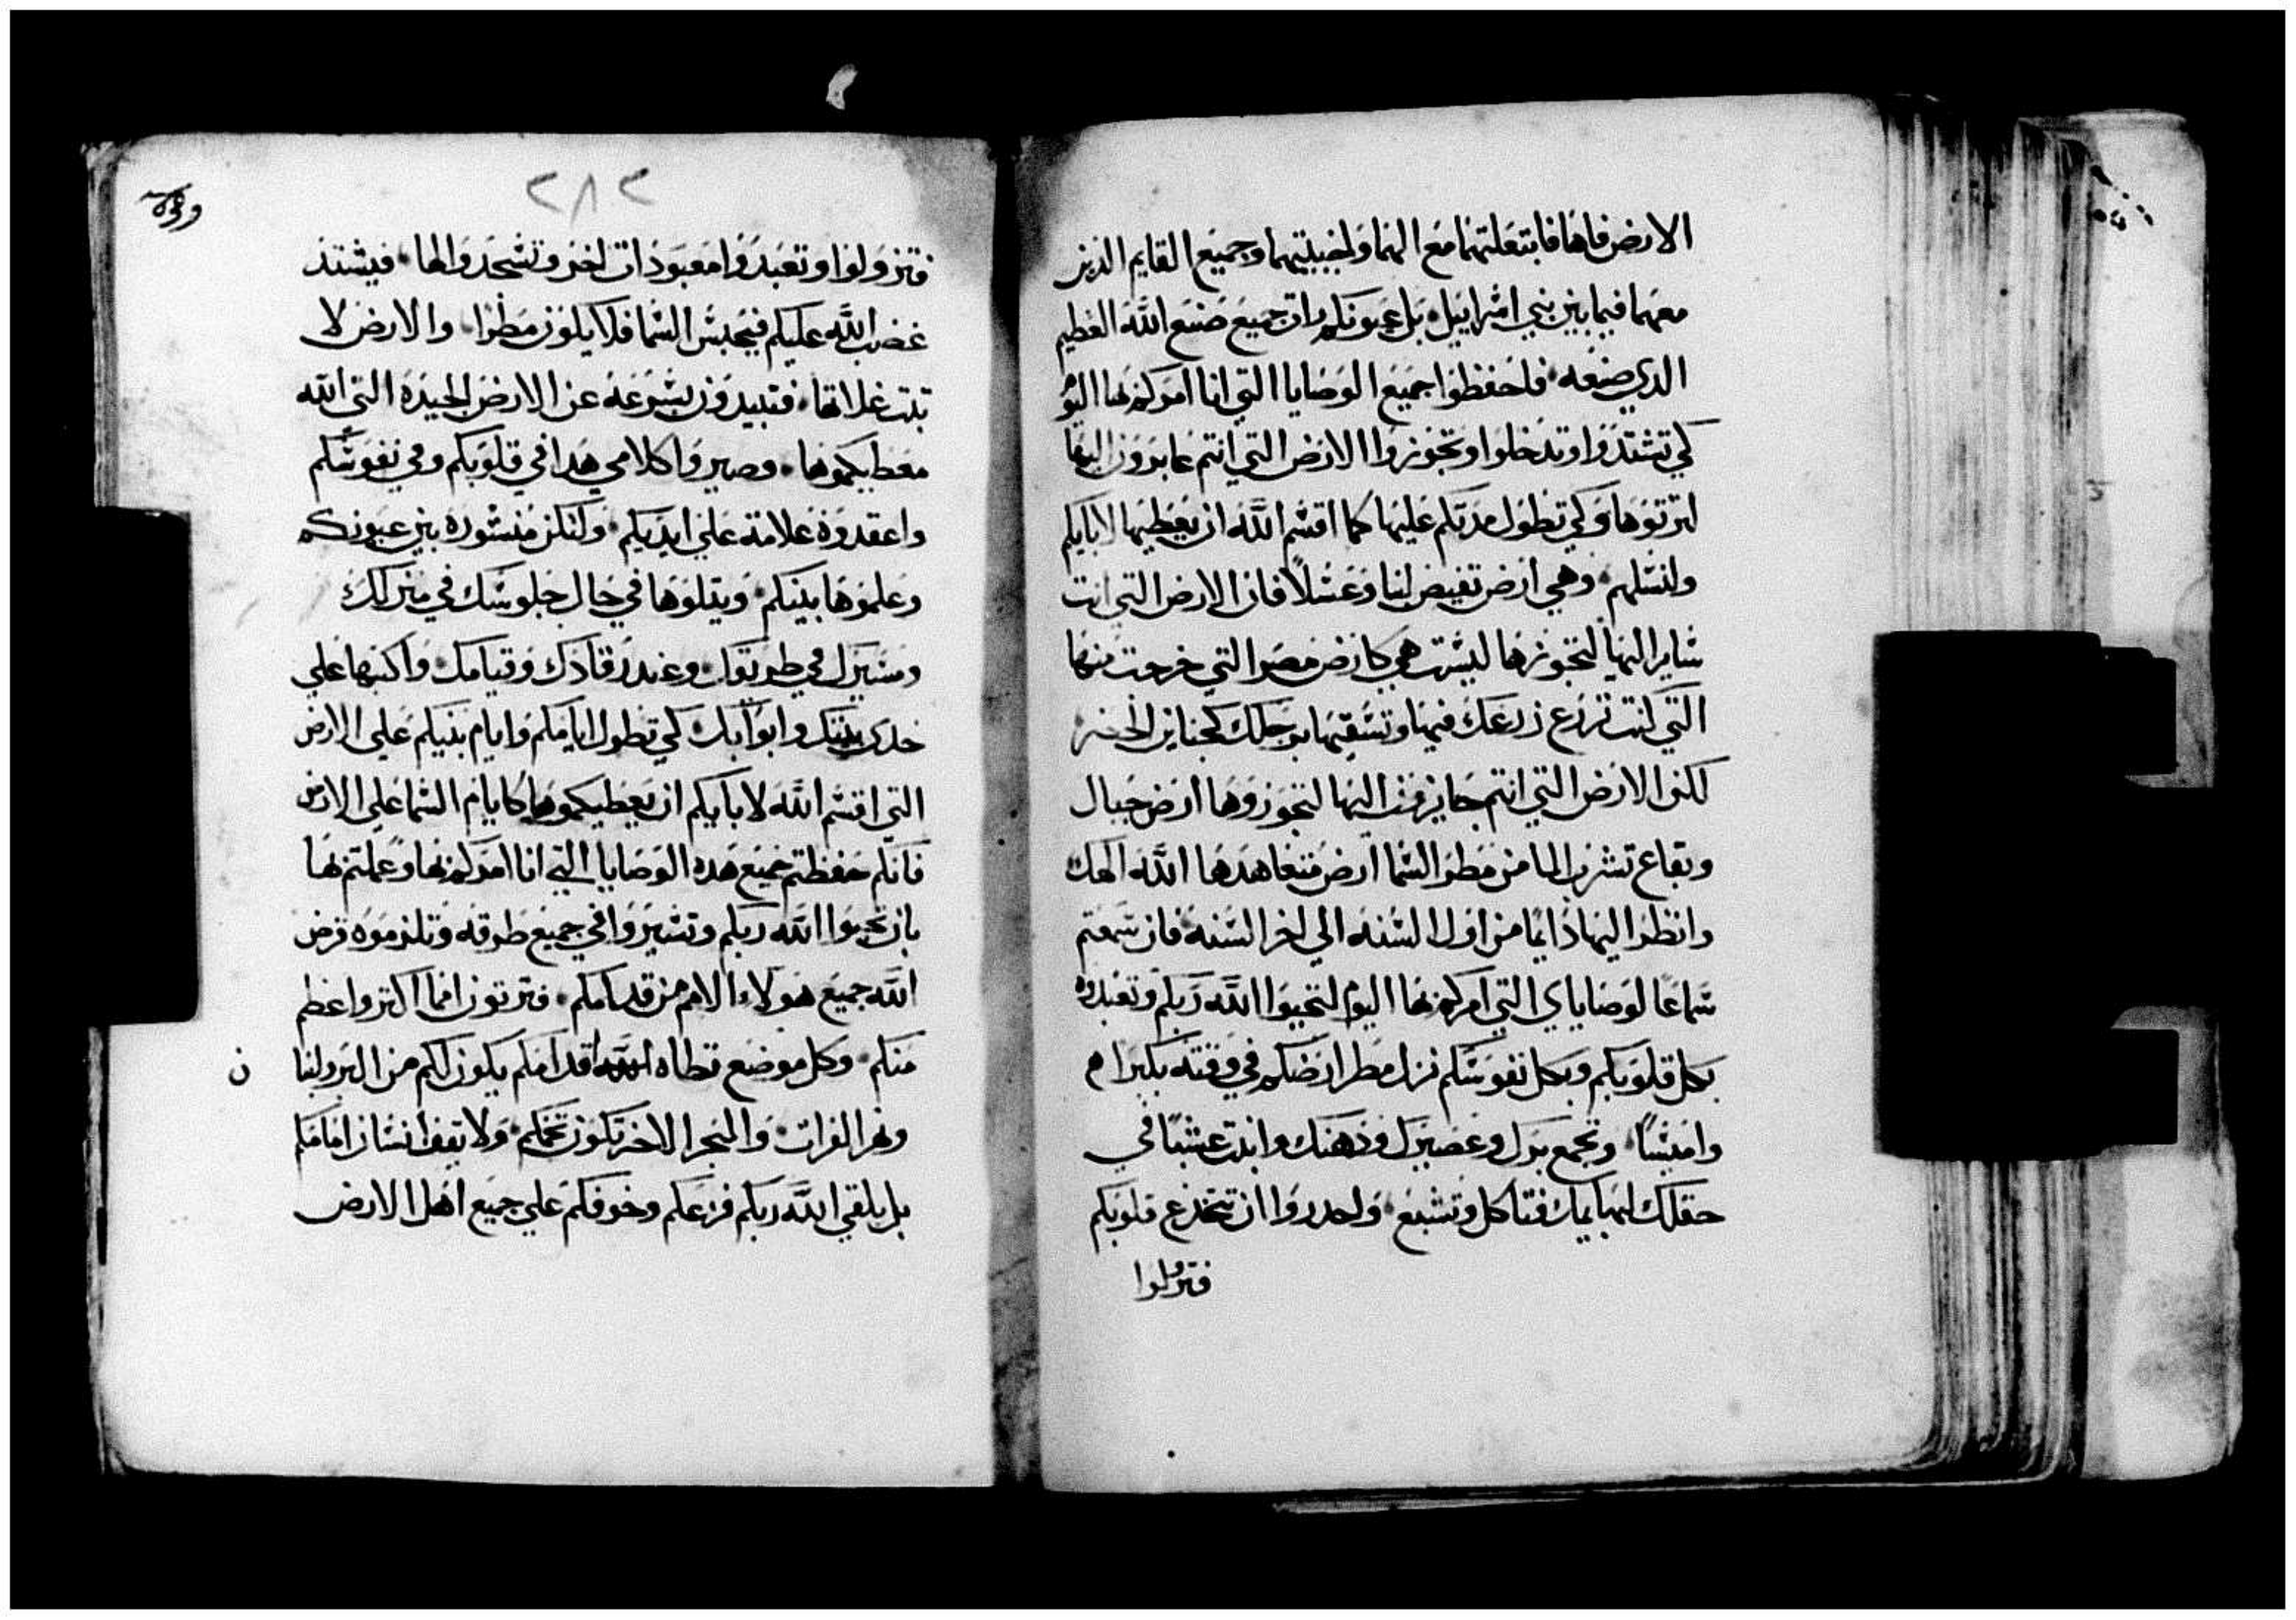 الارض فاها فابتعلتهما مع الهما واخبيتهما وجميع القايم الذين
معهما فيما بين بني اسراييل بل عيونكم رات جميع صنع الله العظيم
الذي صنعه فاحفظوا جميع الوصايا التي انا امركم بها اليوم
كي تشتدوا وتدخلوا وتجوزوا الارض التي انتم عابرون اليها
لترتوها وكي تطول مدتكم عليها كما اقسم الله ان يعطيها لابايكم
ولنسلهم وهي ارض تفيض لبنا وعسلا فان الارض التي انت
ساير اليها لتجوزها ليست هي كارض مصر التي خرجت منها
التي كنت تزرع زرعك فيها وتسقيها برجلك كجناين الخضر
لكن الارض التي انتم جايزون اليها لتجوزوها ارض جبال
وبقاع تشرب الما من مطر السما ارض متعاهدها الله الهك
وانظر اليها دايما من اول السنه الي اخر السنه فان سمعتم
سماعا لوصاياي التي امركم بها اليوم لتحبوا الله ربكم وتعبدوه
بكل قلوبكم وبكل نفوسكم نزل مطر ارضكم في وقته بكيرا
وامسيا وتجمع برك وعصيرك ودهنك وانبت عشبا في
حقلك لبهايمك فتاكل وتشبع واحدروا ان تنخدع قلوبكم
فتزولوا
٢٨٢
فتزولوا وتعبدوا معبودات اخر وتسجدوا لها فيشتد
غضب الله عليكم فيحبس السما فلا يكون مطرا والارض لا
تنبت غلاتها فتبيدون بسرعه عن الارض الجيده التي الله
معطيكموها وصيروا كلامي هدا في قلوبكم وفي نفوسكم
واعقدوه علامة علي ايديكم ولتكن منشوره بين عيونكم
وعلموها بنيكم ويتلوها في حال جلوسك في منزلك
ومسيرك في طريقك وعند رقادك وقيامك واكتبها علي
خدي بيتك وابوابك كي تطول ايامكم وايام بنيكم علي الارض
التي اقسم الله لابايكم ان يعطيكموها كايام السما علي الارض
فانكم حفظتم جميع هده الوصايا التي انا امركم بها وعملتم بها
بان تحبوا الله ربكم وتسيروا في جميع طرقه وتلزموه قرض
الله جميع هولاء الامم من قدامكم فترتون امما اكتر واعظم
منكم وكل موضع تطاه اقدامكم يكون لكم من البر ولبنا
ن
ونهر الفرات والبحر الاخر تكون تخمكم ولا يقف انسان امامكم
بل يلقي الله ربكم فزعكم وخوفكم علي جميع اهل الارض